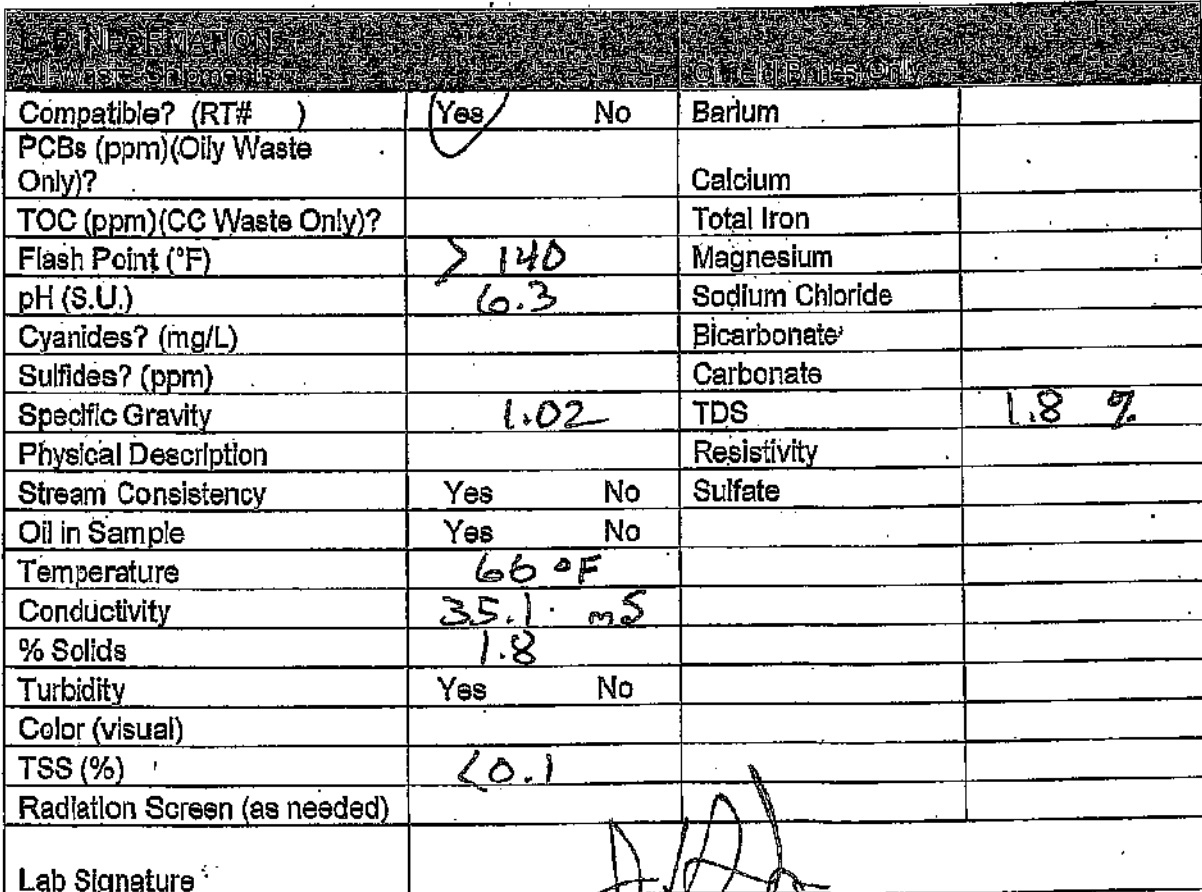 LAB INFORMATION
All Waste Shipments
Compatible? (RT# ) Yes No Barium
PCBs (ppm)(Oily Waste
Only)? Calcium
TOC (ppm)(CC Waste Only)? Total Iron
Flash Point (°F) > 140 Magnesium
pH (S.U.) 6.3 Sodium Chloride
Cyanides? (mg/L) Bicarbonate
Sulfides? (ppm) Carbonate
Specific Gravity 1.02 TDS 1.8 %
Physical Description Resistivity
Stream Consistency Yes No Sulfate
Oil in Sample Yes No
Temperature 66 °F
Conductivity 35.1 mS
% Solids 1.8
Turbidity Yes No
Color (visual)
TSS (%) <0.1
Radiation Screen (as needed)
Lab Signature